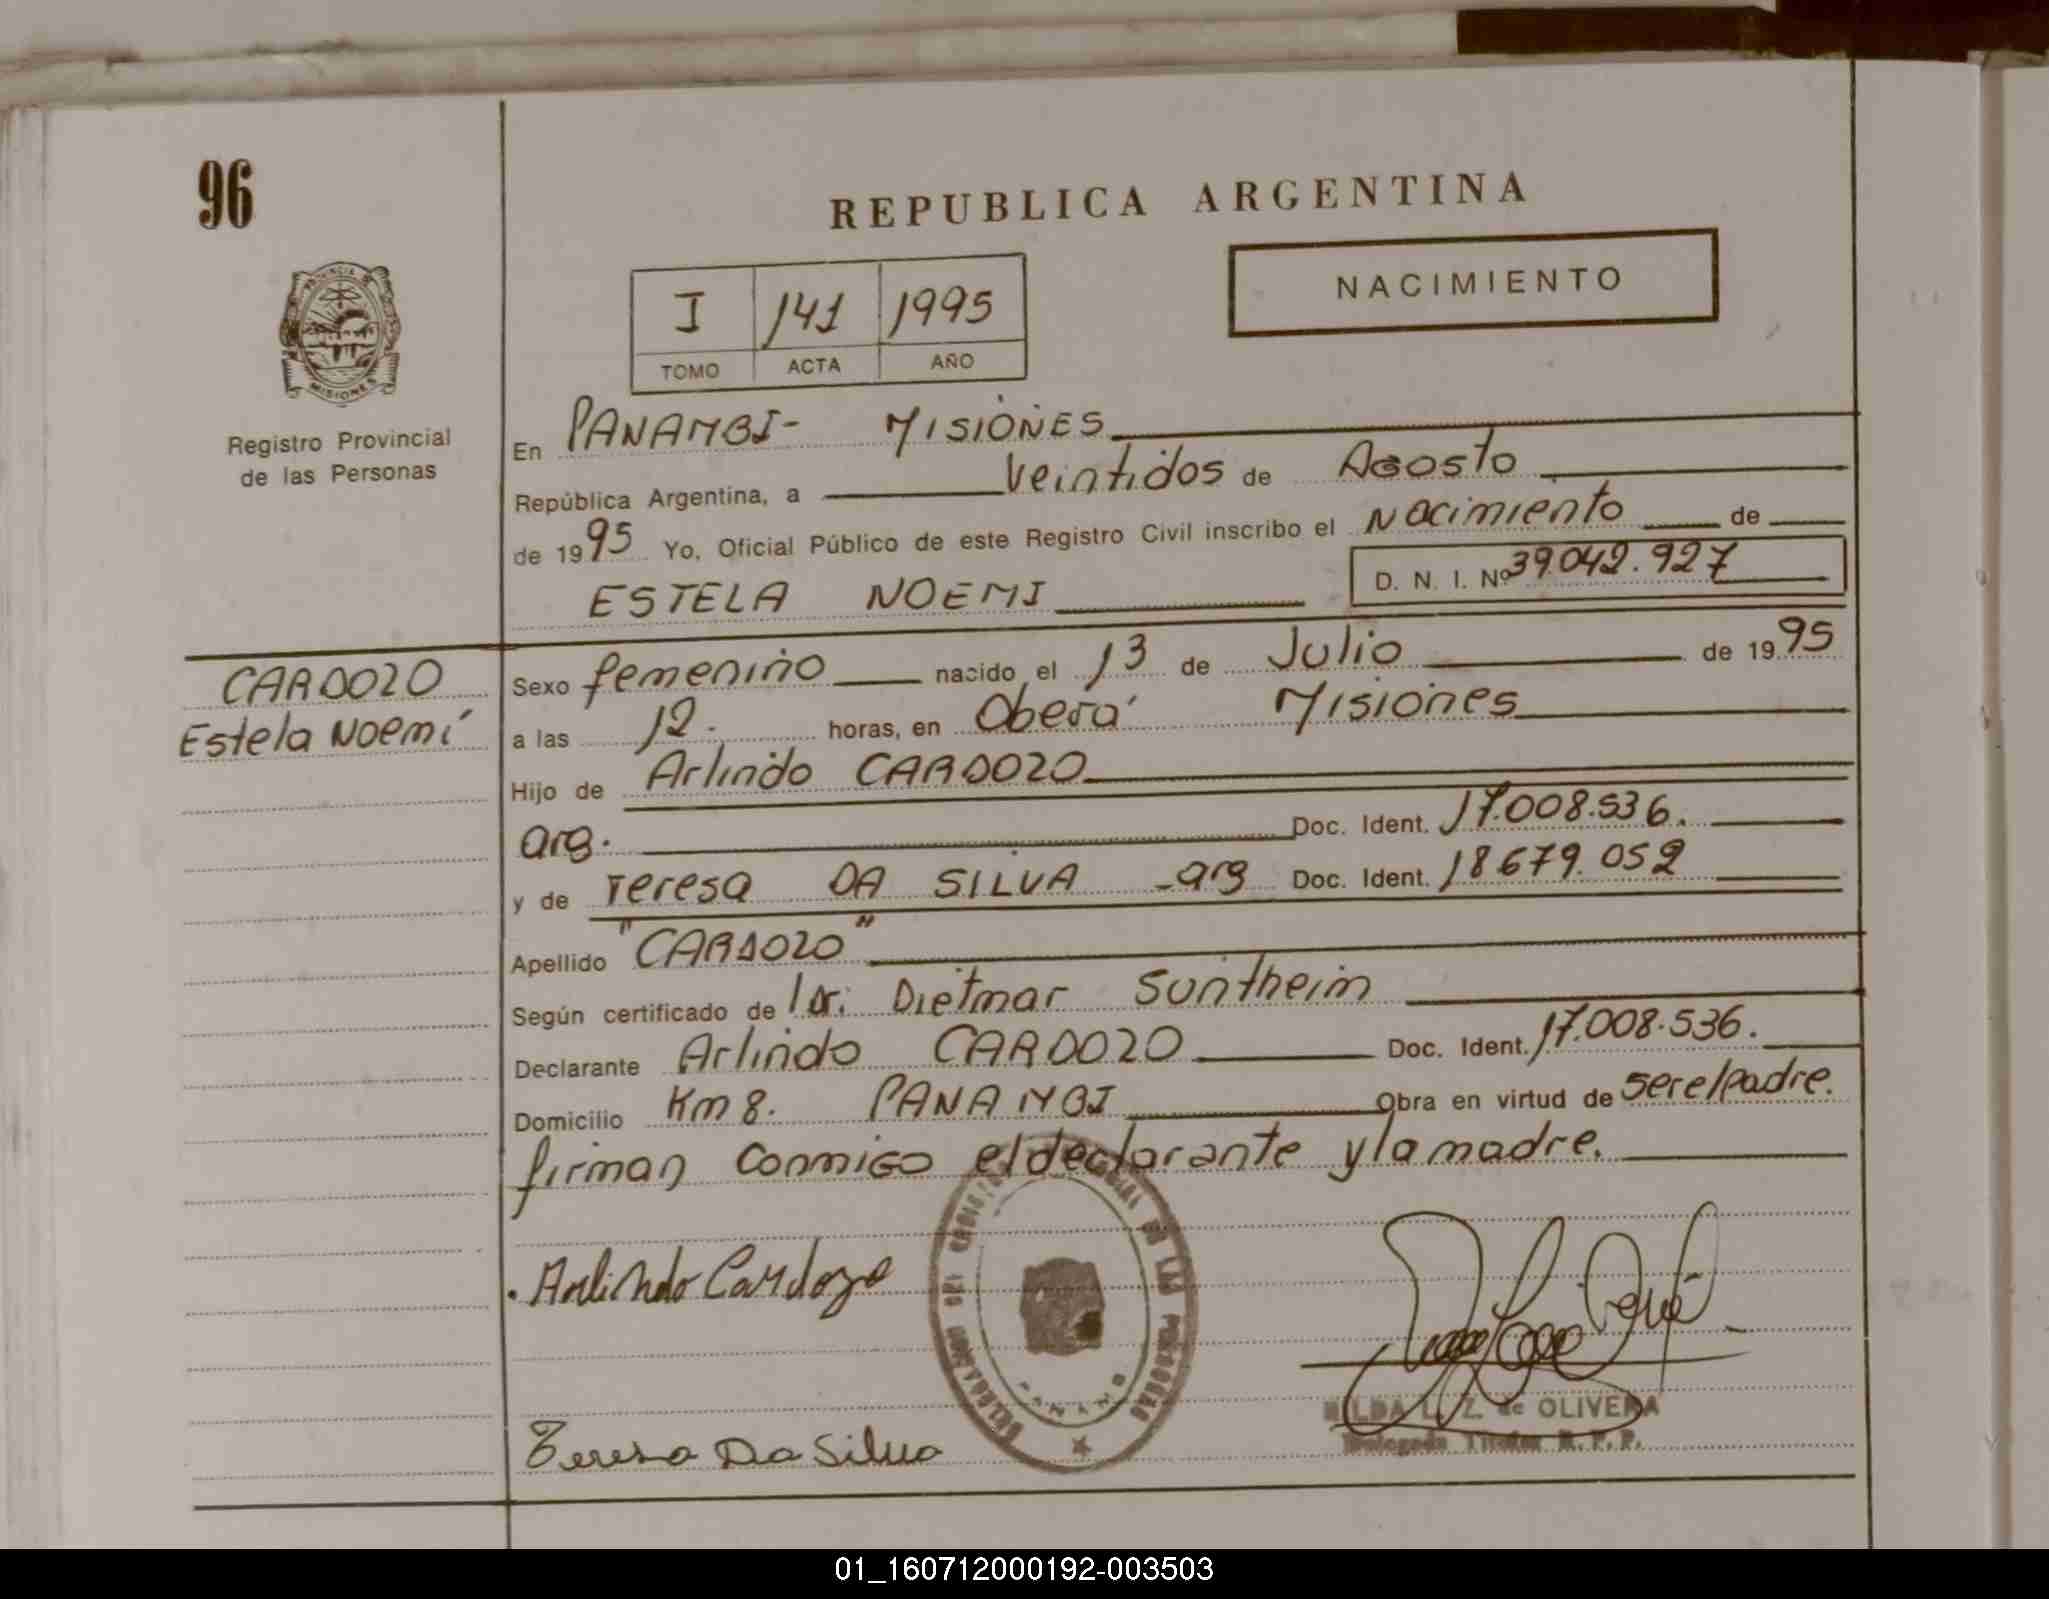 96
REPUBLICA ARGENTINA
NACIMIENTO
I 141 1995
TOMO ACTA AÑO
PROVINCIA DE
MISIONES
Registro Provincial
de las Personas
En PANAMBI- MISIONES
República Argentina, a veintidos de Agosto
de 1995 Yo, Oficial Público de este Registro Civil inscribo el nacimiento de
ESTELA NOEMI D. N. I. Nº 39.042.927
CARDOZO
Estela Noemí
Sexo femenino nacido el 13 de Julio de 1995
a las 12. horas, en Oberá Misiones
Hijo de Arlindo CARDOZO
arg. Doc. Ident. 17.008.536.
y de Teresa DA SILVA - arg Doc. Ident. 18679.052
Apellido "CARDOZO"
Según certificado de Dr. Dietmar Suntheim
Declarante Arlindo CARDOZO Doc. Ident. 17.008.536.
Domicilio Km 8. PANAMBI Obra en virtud de ser el padre.
firman conmigo el declarante y la madre.
Arlindo Cardozo
DELEGACION DEL REGISTRO PROVINCIAL DE LAS PERSONAS
PANAMBI
de OLIVERA
Delegada Titular R. P. P.
Teresa Da Silva
01_160712000192-003503